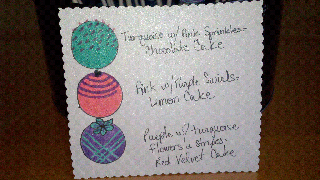 Turquoise w/ Pink Sprinkles=
Chocolate Cake
Pink w/ Purple Swirls=
Lemon Cake
Purple w/ Turquoise
Flowers & Stripes:
Red Velvet Cake